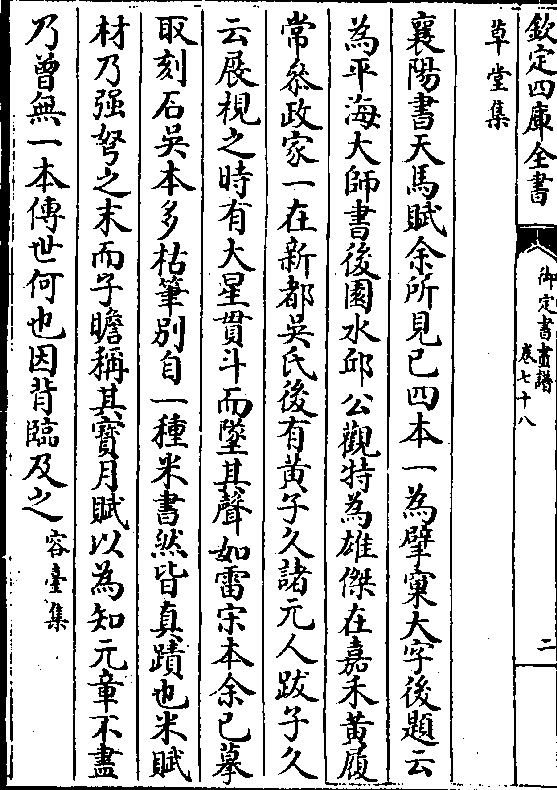 欽定四庫全書
御定書畫譜
卷七十八
二
草堂集
襄陽書天馬賦余所見已四本一為擘窠大字後題云
為平海大師書後園水邱公觀特為雄傑在嘉禾黃履
常叅政家一在新都吳氏後有黃子久諸元人跋子久
云展視之時有大星貫斗而墜其聲如雷宋本余已摹
取刻石吳本多枯筆別自一種米書然皆真蹟也米賦
材乃强弩之末而子瞻稱其寳月賦以為知元章不盡
乃曾無一本傳世何也因背臨及之容臺集